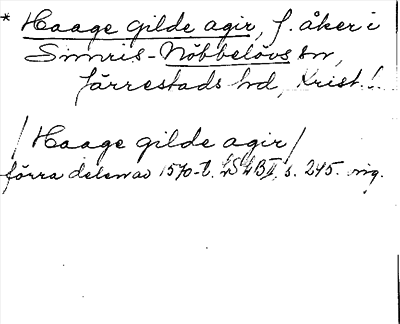 * Haage gilde agir, f. åker i
Simris-Nöbbelövs sn,
Järrestads hd, Krist. l.
/Haage gilde agir/
förra delen av 1570-t. LSHBII, s. 245. orig.